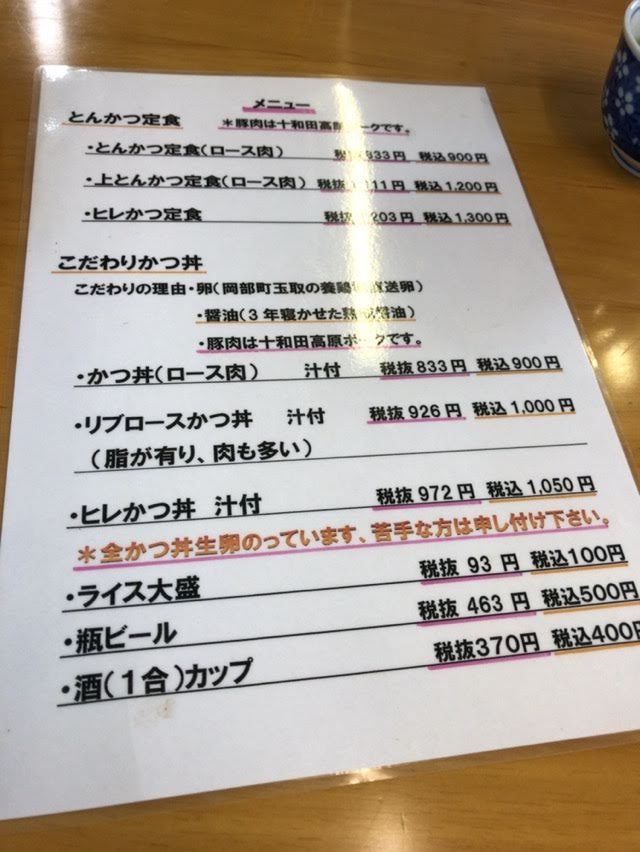 メニュー
とんかつ定食 *豚肉は十和田高原ポークです。
・とんかつ定食(ロース肉) 税抜833円 税込900円
・上とんかつ定食(ロース肉) 税抜 111円 税込1,200円
・ヒレかつ定食 税抜 203円 税込1,300円
こだわりかつ丼
こだわりの理由・卵(岡部町玉取の養鶏 直送卵)
・醤油(3年寝かせた熟成醤油)
・豚肉は十和田高原ポークです。
・かつ丼(ロース肉) 汁付 税抜833円 税込900円
・リブロースかつ丼 汁付 税抜926円 税込1,000円
(脂が有り、肉も多い)
・ヒレかつ丼 汁付 税抜972円 税込1,050円
*全かつ丼生卵のっています、苦手な方は申し付け下さい。
・ライス大盛 税抜 93円 税込100円
・瓶ビール 税抜 463円 税込500円
・酒(1合)カップ 税抜370円 税込400円